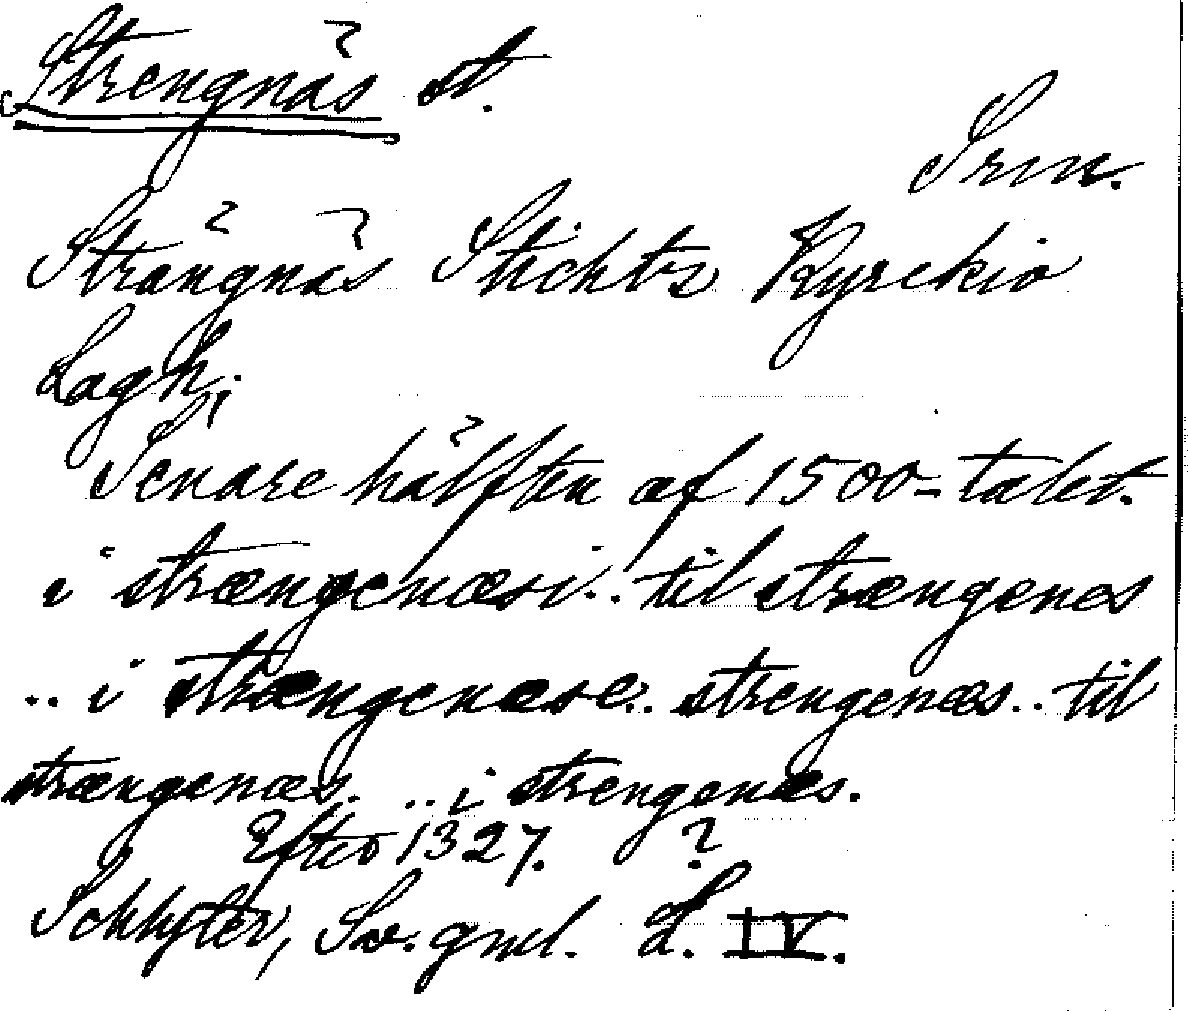 Strengnäs st.
Srm.
Strängnäs Stichtz Kyrckio
Lagh;
Senare hälften af 1500-talet.
i strængenæsi .. til strængenes
.. i strængenæse .. strengenæs .. til
strængenæs. .. i strengenæs.
Efter 1327. ?
Schlyter, Sv. gml. L. IV.